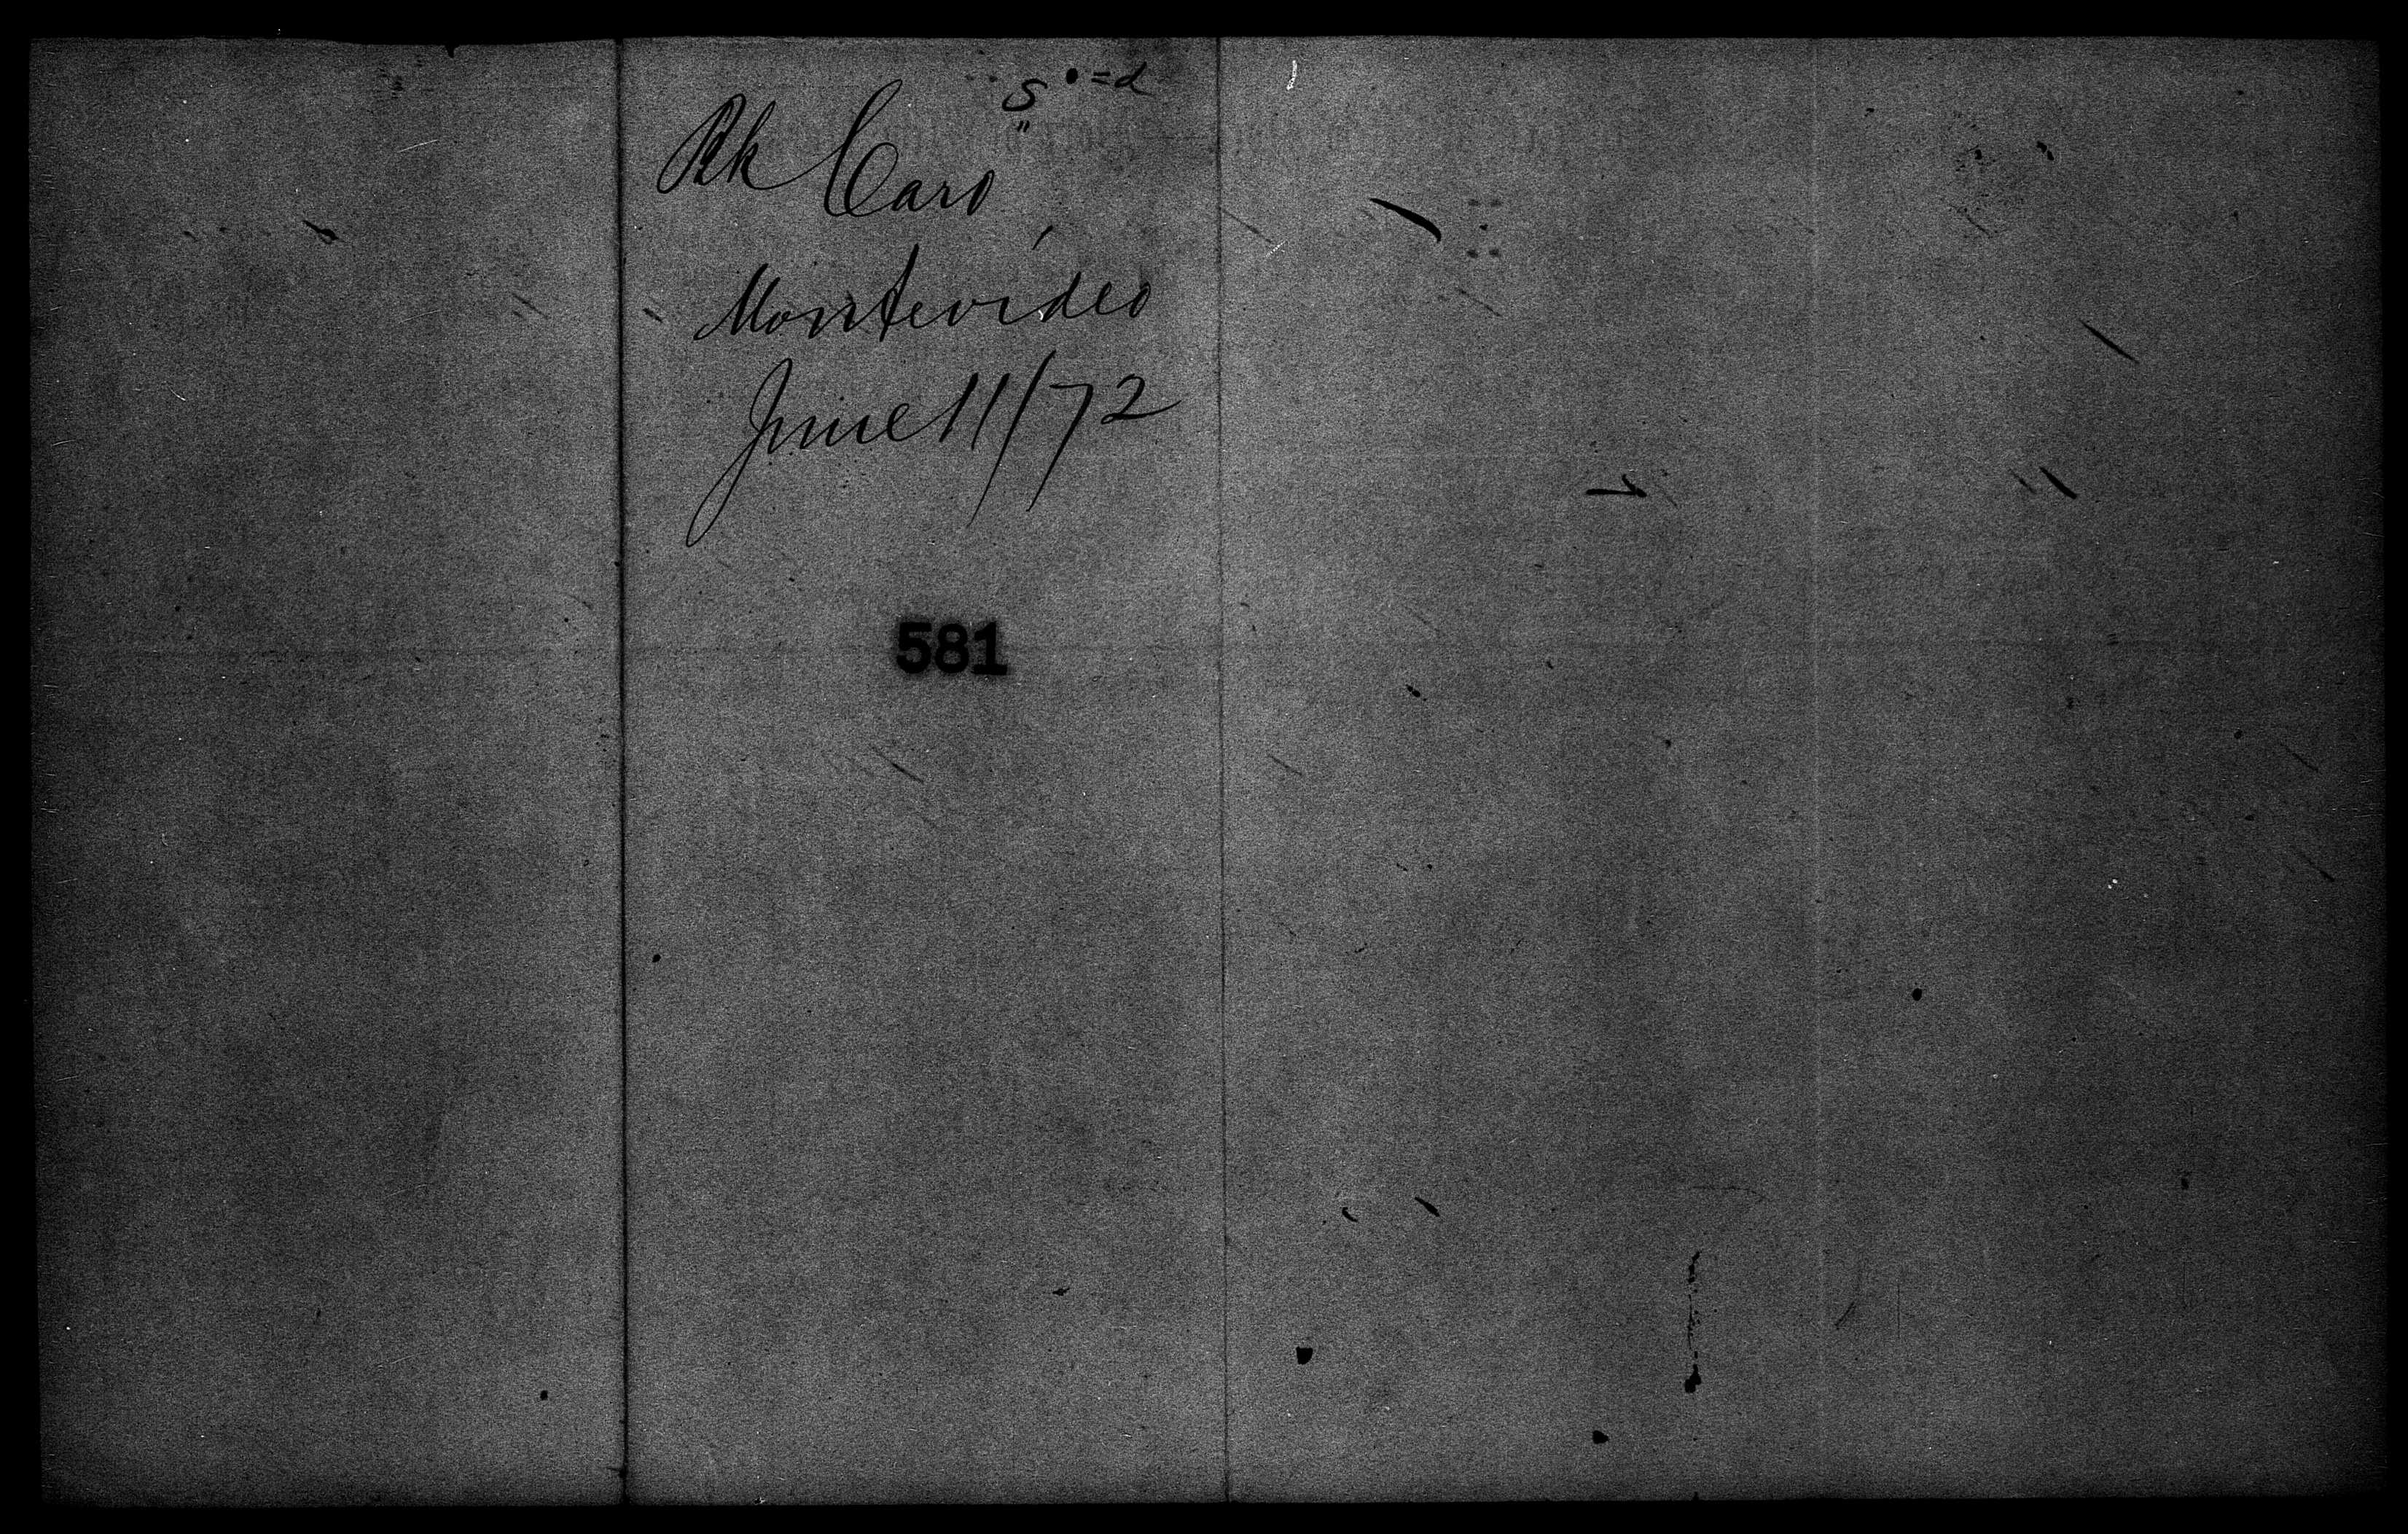 Bk Caro
Montevideo
June 11/72
581